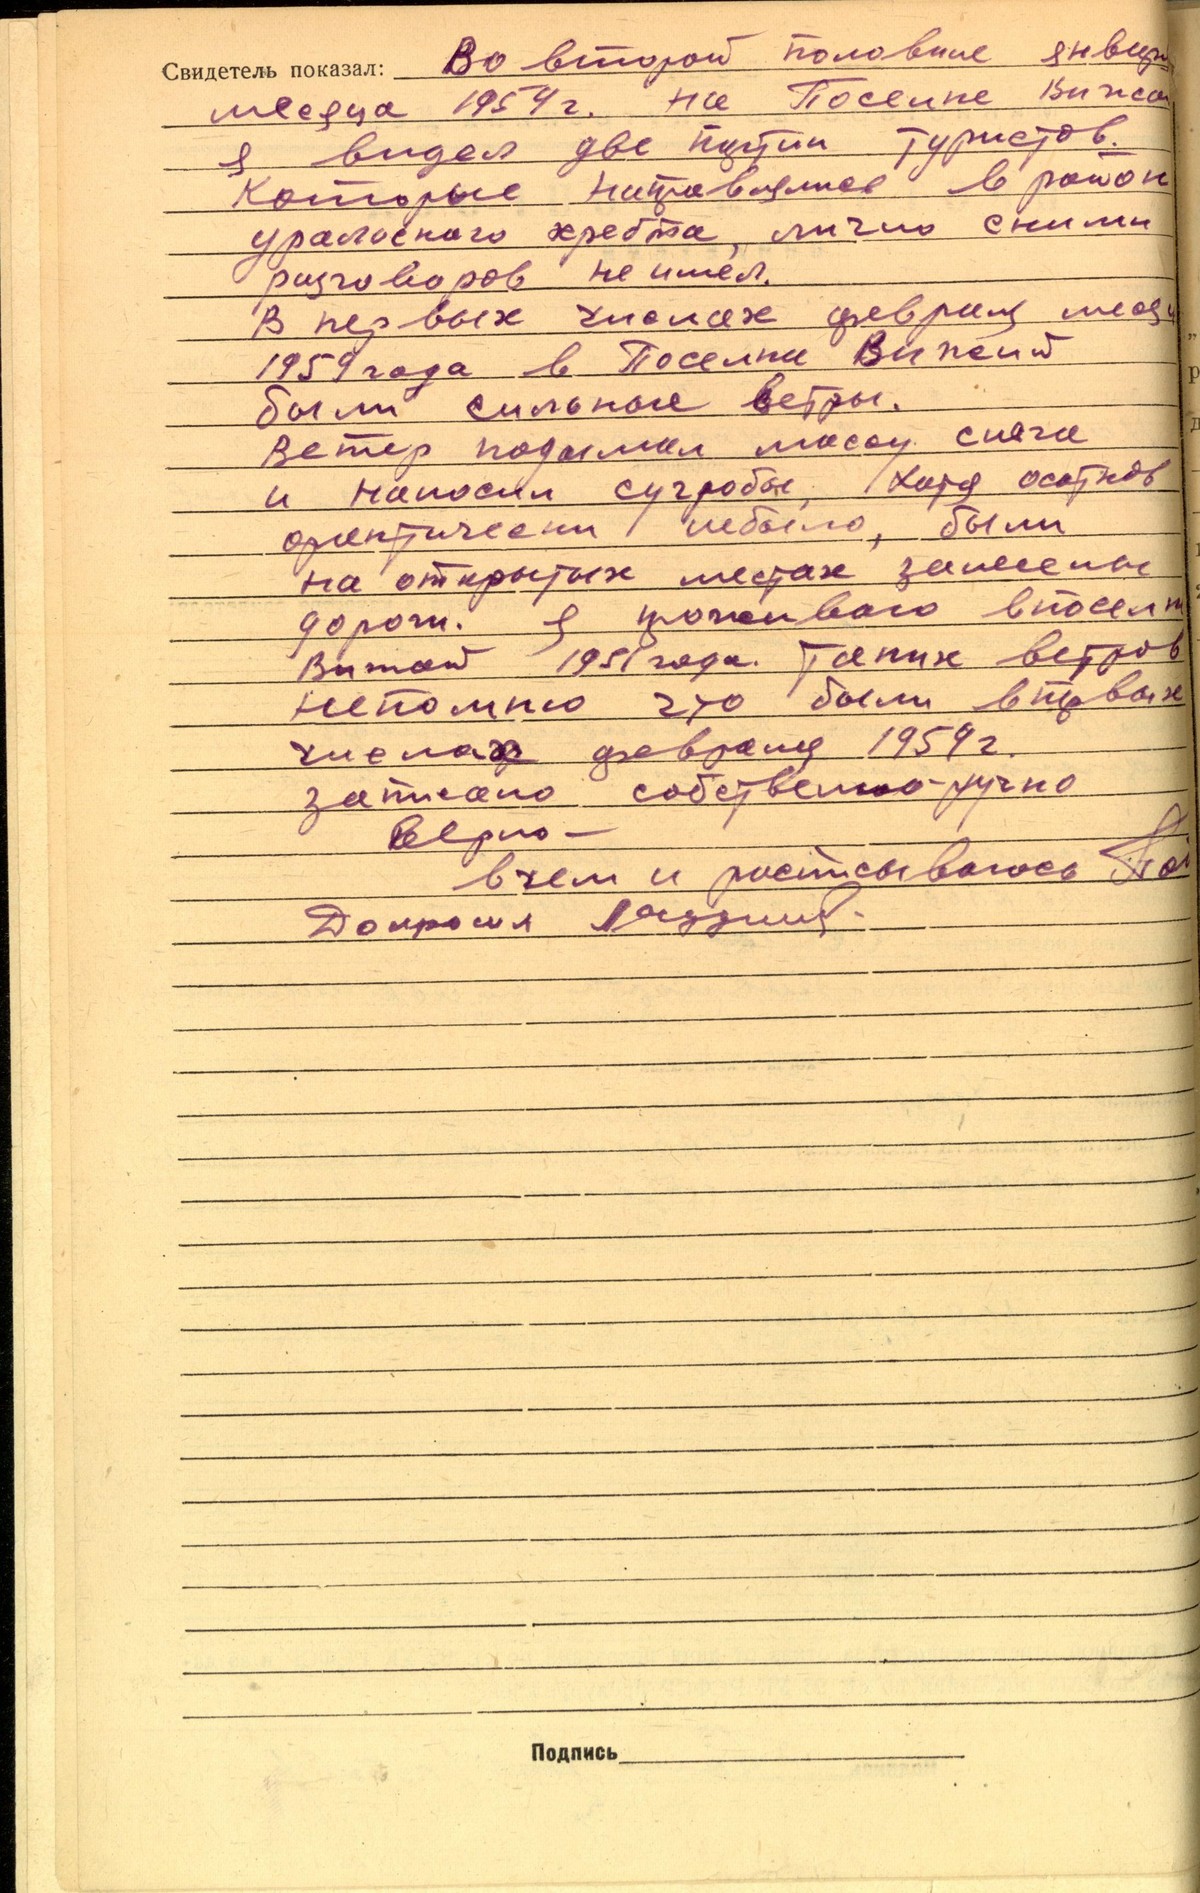 Свидетель показал: Во второй половине январ
месяца 1959 г. на Поселке Вижаи
я видел две партии туристов.
Которые направлялись в район
уральского хребта, лично сними
разговоров не имел.
В первых числах февраля меся
1959 года в Поселки Вижай
были сильные ветры.
Ветер подымал массу снега
и наносил сугробы, Хотя осатков
практически небыло, были
на открытых местах занесены
дороги. Я проживаю впоселк
Вижай 1951 года. Таких ветров
непомню что были впервых
числах февраля 1959 г.
записано собственно-ручно
верно —
вчем и расписываюсь
Допросил
Подпись